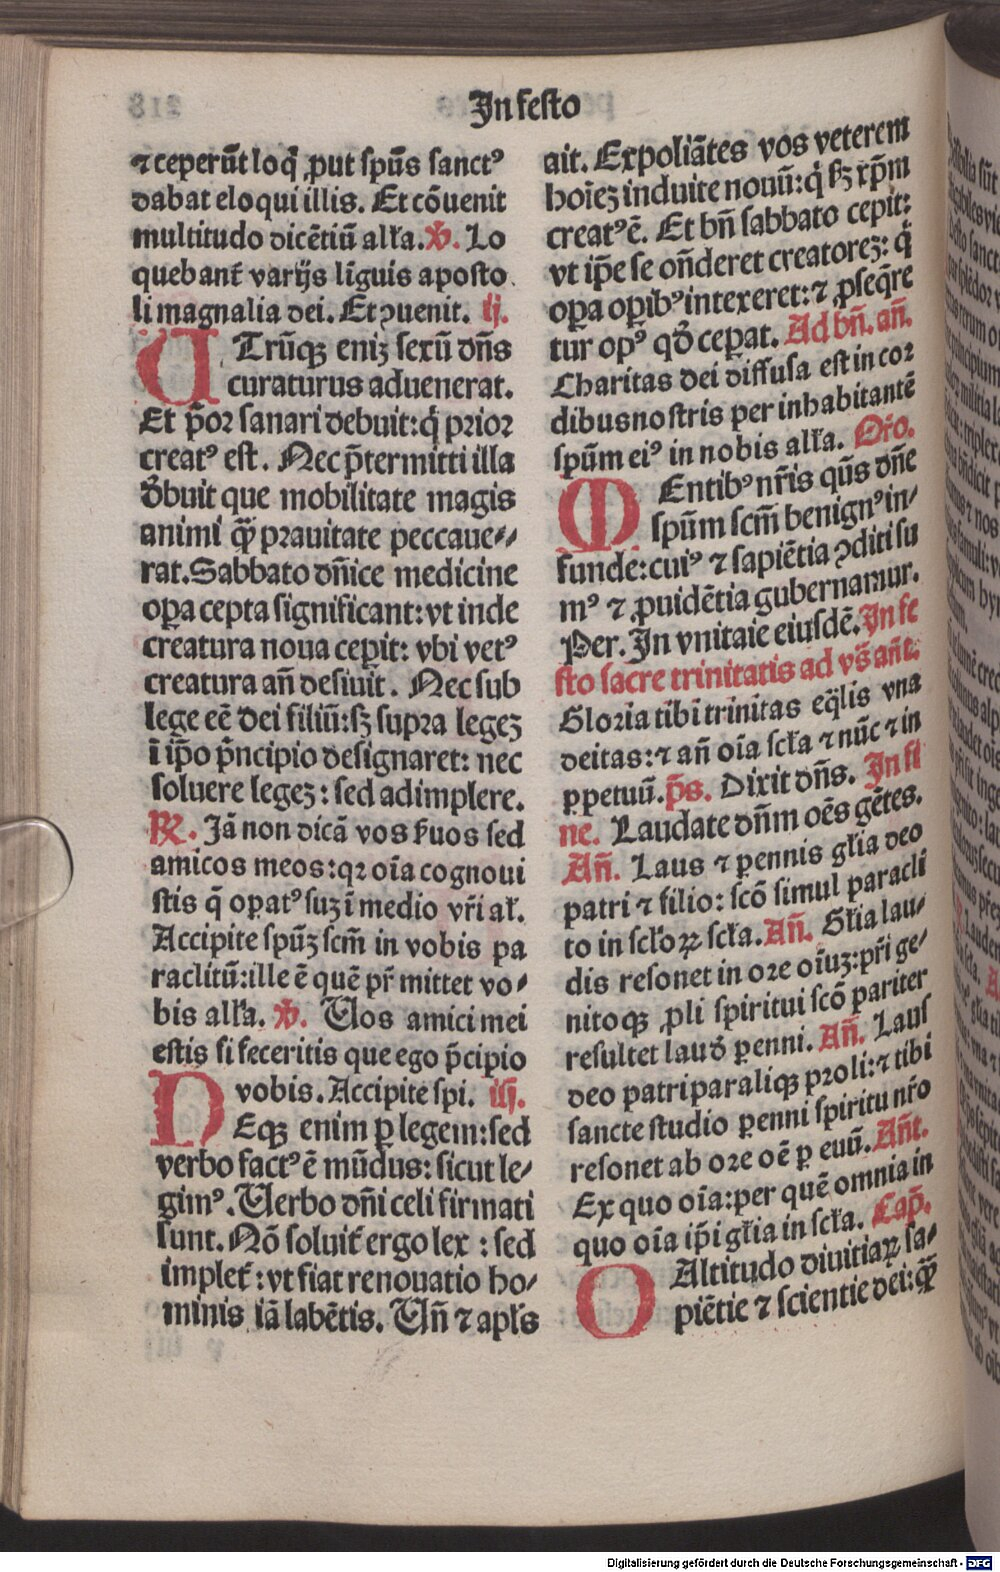 In festo
⁊ ceperūt loq̄ ꝓut spūs sanctꝰ
dabat eloqui illis. Et cōuenit
multitudo dicētiū alľa. ℣. Lo
quebant̄ varijs liguis aposto
li magnalia dei. Et ꝯuenit. ij.
UTrūqꝫ eniꝫ sexū dn̄s
curaturus aduenerat.
Et p̄or sanari debuit: q̄ prior
creatꝰ est. Nec p̄termitti illa
d̄buit que mobilitate magis
animi qꝫ̄ prauitate peccaue⸗
rat. Sabbato dn̄ice medicine
oꝑa cepta significant: vt inde
creatura noua cepit: vbi vetꝰ
creatura an̄ desiuit. Nec sub
lege eē dei filiū: sꝫ supra legeꝫ
ī ip̄o p̄ncipio designaret: nec
soluere legeꝫ: sed adimplere.
℟. Iā non dicā vos ẜuos sed
amicos meos: qꝛ oīa cognoui
stis q̄ oꝑatꝰ suꝫ ī medio vr̄i ał.
Accipite spūꝫ scm̄ in vobis pa
raclitū: ille ē quē pr̄ mittet vo⸗
bis alľa. ℣. Uos amici mei
estis si feceritis que ego p̄cipio
vobis. Accipite spi. iij.
NEqꝫ enim ꝑ legem: sed
verbo factꝰ ē mūdus: sicut le⸗
gimꝰ. Uerbo dn̄i celi firmati
sunt. Nō soluit̄ ergo lex: sed
implet̄: vt fiat renouatio ho⸗
minis iā labētis. Un̄ ⁊ apľs
ait. Expoliātes vos veterem
hoīeꝫ induite nouū: q̄ ẜꝫ xp̄m
creatꝰ ē. Et bn̄ sabbato cepit:
vt ip̄e se on̄deret creatoreꝫ: q̄
oꝑa oꝑibꝰ intexeret: ⁊ ꝓseq̄re
tur opꝰ qd̄ ceꝑat. Ad bn̄. an̄.
Charitas dei diffusa est in cor
dibus nostris per inhabitantē
spūm eiꝰ in nobis alľa. Or̄o.
MEntibꝰ nr̄is qūs dn̄e
spūm scm̄ benignꝰ in⸗
funde: cuiꝰ ⁊ sapiētia ꝯditi su
mꝰ ⁊ ꝓuidētia gubernamur.
Per. In vnitaie eiusdē. In fe
sto sacre trinitatis ad vs̄ an̄e.
Gloria tibi trinitas eq̄lis vna
deitas: ⁊ an̄ oīa scľa ⁊ nūc ⁊ in
ꝑpetuū. p̄s. Dixit dn̄s. In fi
ne. Laudate dn̄m oēs gētes.
An̄. Laus ⁊ ꝑennis gľia deo
patri ⁊ filio: scō simul paracli
to in scľoꝝ scľa. An̄. Gľia lau⸗
dis resonet in ore oīuꝫ: pr̄i ge⸗
nitoqꝫ ꝓli spiritui scō pariter
resultet laud̄ ꝑenni. An̄. Laus
deo patri paraliqꝫ proli: ⁊ tibi
sancte studio ꝑenni spiritu nr̄o
resonet ab ore oē ꝑ euū. An̄t.
Ex quo oīa: per quē omnia in
quo oīa ip̄i gľia in scľa. Cap̄.
OAltitudo diuitiaꝝ sa⸗
piētie ⁊ scientie dei: qꝫ̄
Digitalisierung gefördert durch die Deutsche Forschungsgemeinschaft - DFG